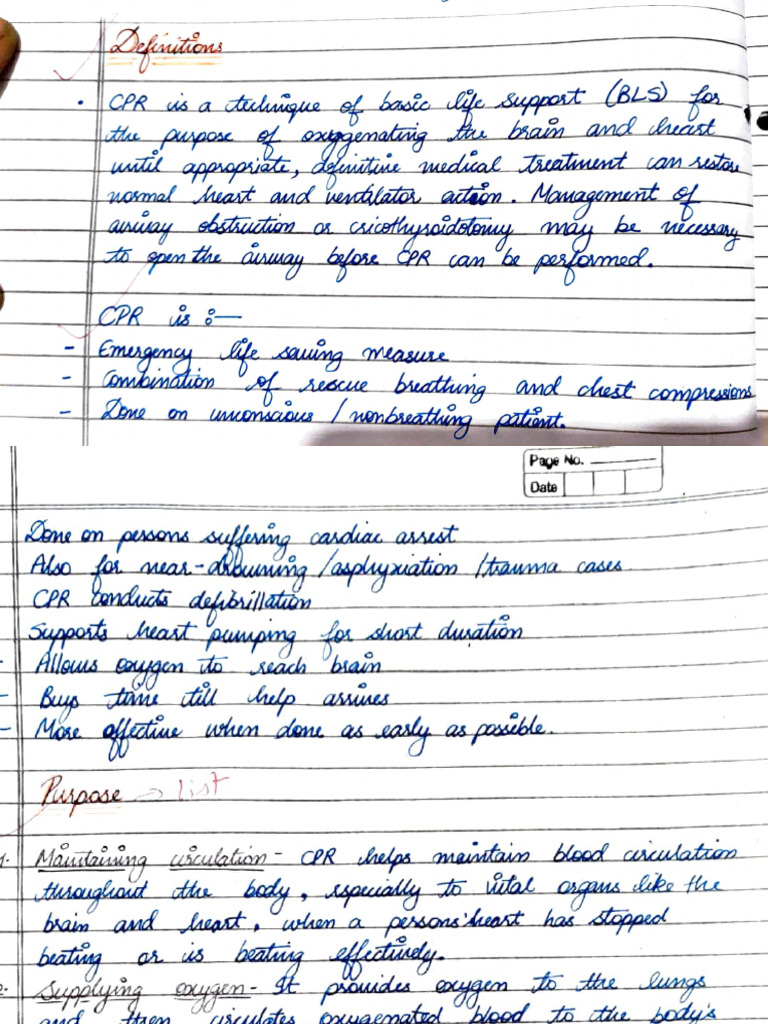 Definitions
• CPR is a technique of basic life support (BLS) for
the purpose of oxygenating the brain and heart
until appropriate, definitine medical treatment can restore
normal heart and ventilator action. Management of
airway obstruction or cricothyroidotomy may be necessary
to open the airway before CPR can be performed.
CPR is :—
- Emergency life saving measure
- Combination of rescue breathing and chest compressions
- Done on unconscious / nonbreathing patient.
Page No.
Date
Done on persons suffering cardiac arrest
Also for near-drowning /asphyxiation /trauma cases
CPR conducts defibrillation
Supports heart pumping for short duration
- Allows oxygen to reach brain
- Buys time till help arrives
- More effective when done as early as possible.
Purpose → List
1. Maintaining circulation - CPR helps maintain blood circulation
throughout the body, especially to vital organs like the
brain and heart, when a persons' heart has stopped
beating or is beating effectively.
2. Supplying oxygen - It provides oxygen to the lungs
and then circulates oxygenated blood to the body's